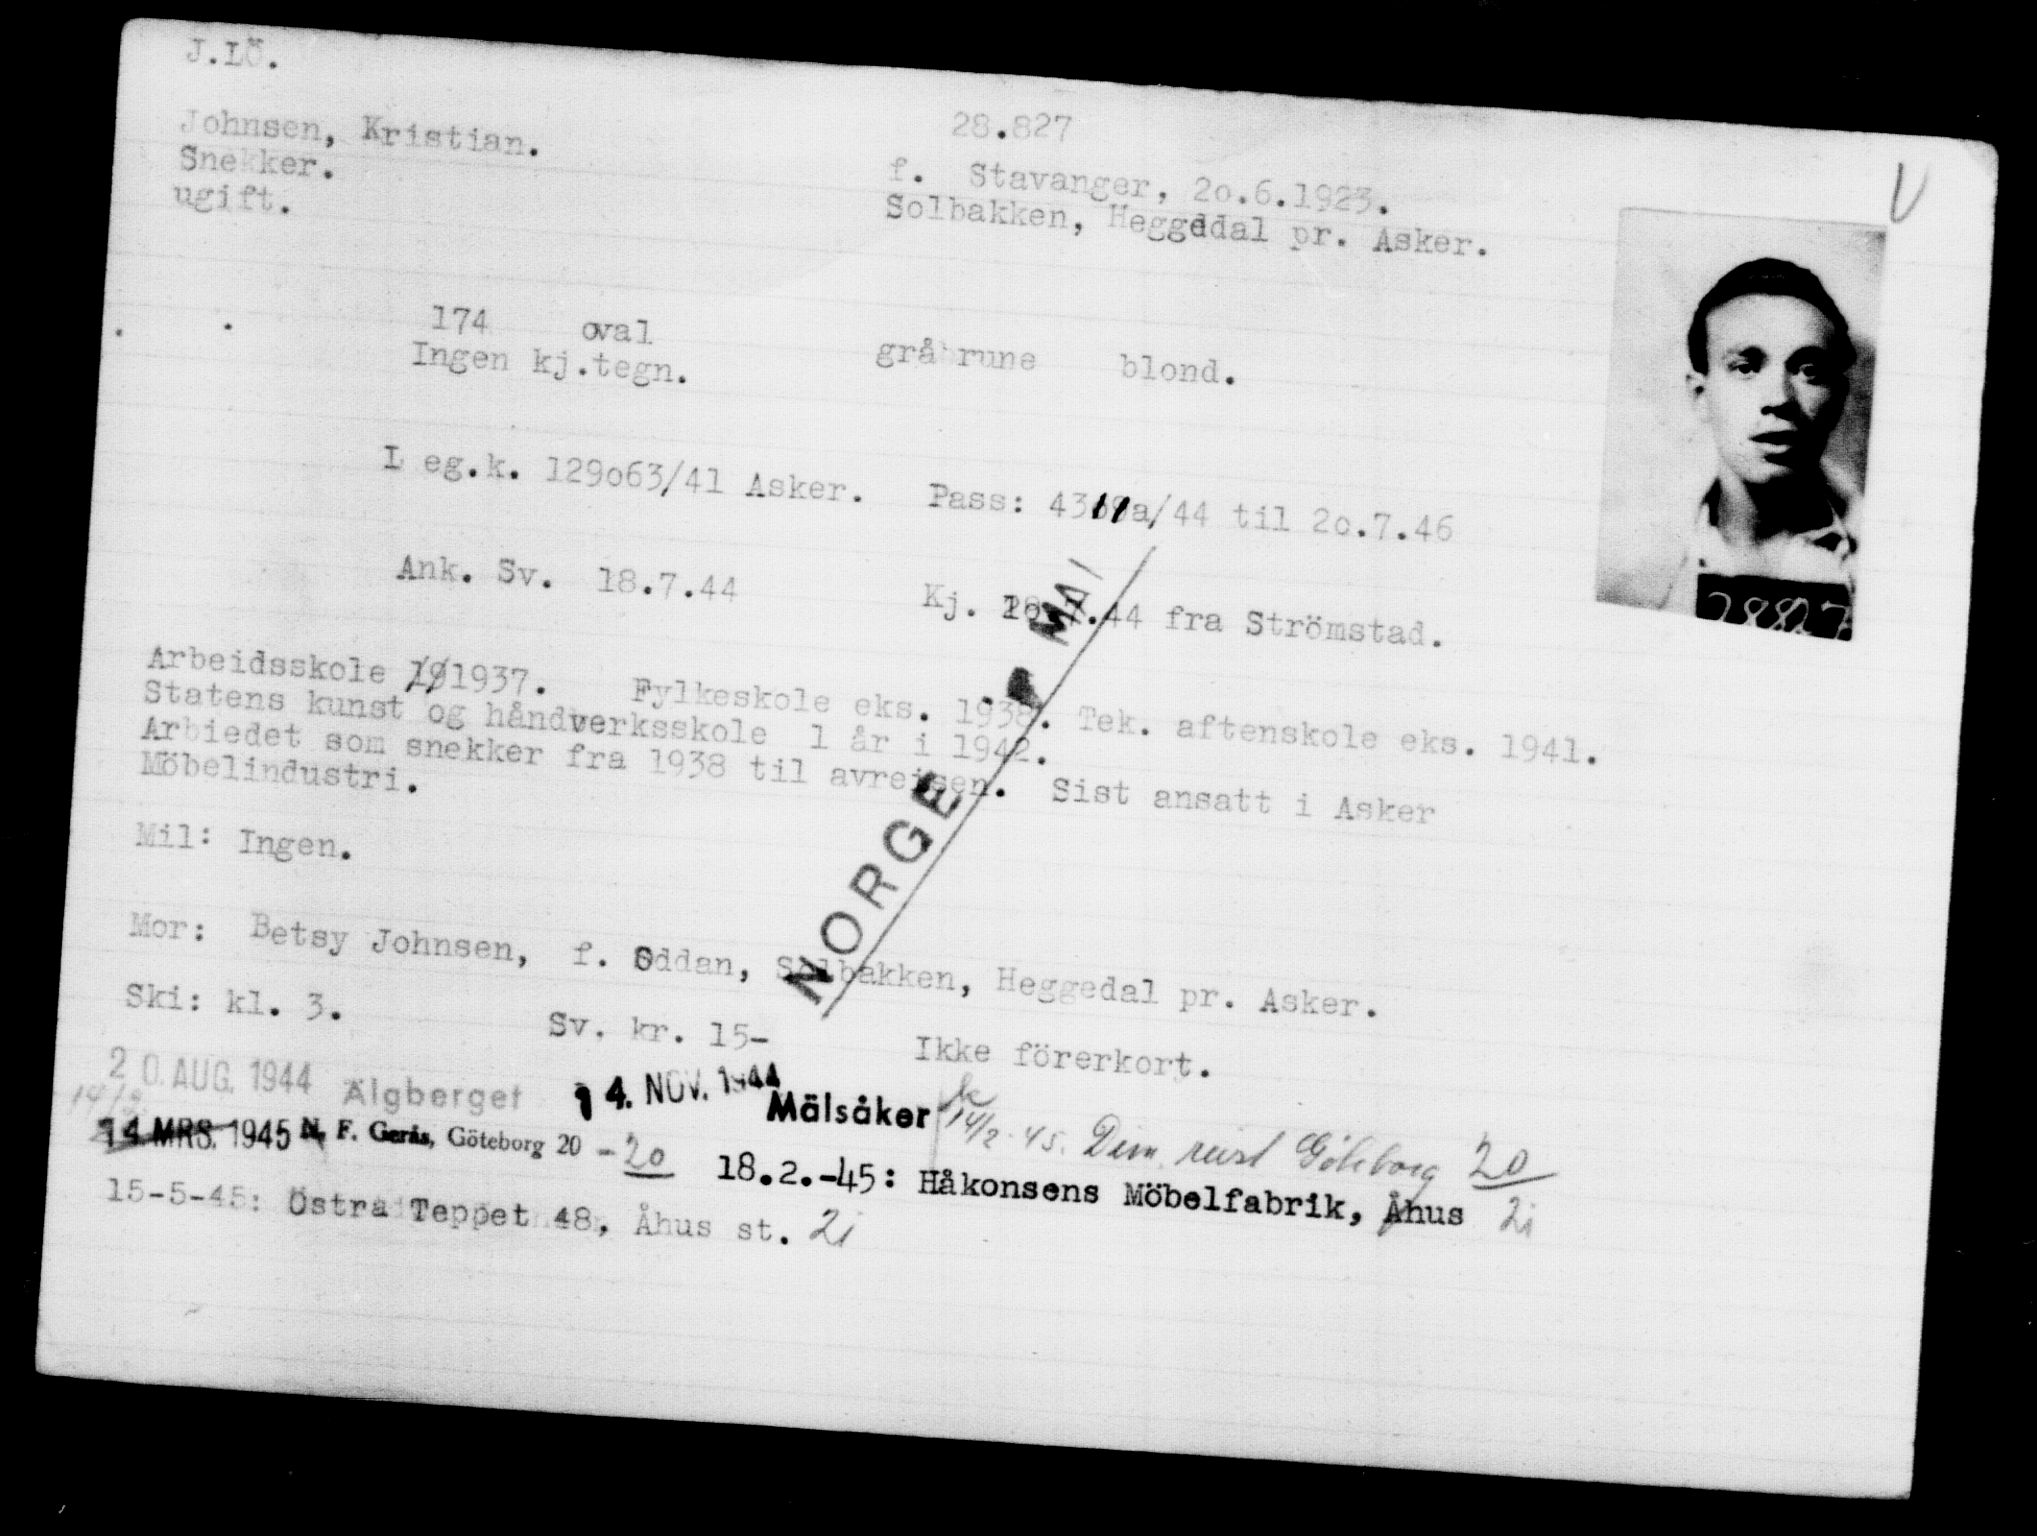 J.LÖ.
V
28.827
Johnsen, Kristian.
Snekker.
ugift.
f. Stavanger, 2o.6.1923.
Solbakken, Heggddal pr. Asker.
174 oval gråbrune blond.
Ingen kj.tegn.
28827
L eg.k. 129o63/41 Asker. Pass: 4311a/44 til 2o.7.46
Ank. Sv. 18.7.44 Kj. 7.44 fra Strömstad.
MAI
NORGE
Arbeidsskole 1937. Fylkeskole eks. 1938. Tek. aftenskole eks. 1941.
Statens kunst og håndverksskole 1 år i 1942.
Arbiedet som snekker fra 1938 til avreisen. Sist ansatt i Asker
Möbelindustri.
Mil: Ingen.
Mor: Betsy Johnsen, f. Oddan, Solbakken, Heggedal pr. Asker.
Ski: kl. 3. Sv. kr. 15- Ikke förerkort.
20. AUG. 1944 Älgberget 14. NOV. 1944 Mälsåker 14/2 45. Dim. reist Göteborg 20
14/2
14 MRS. 1945 N. F. Gerås, Göteborg 20 - 20 18.2.-45: Håkonsens Möbelfabrik, Åhus 2i
15-5-45: Östra Teppet 48, Åhus st. 2i